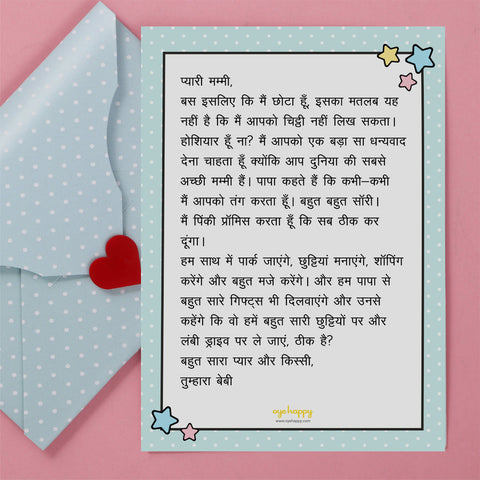 प्यारी मम्मी,
बस इसलिए कि मैं छोटा हूँ, इसका मतलब यह
नहीं है कि मैं आपको चिट्ठी नहीं लिख सकता।
होशियार हूँ ना? मैं आपको एक बड़ा सा धन्यवाद
देना चाहता हूँ क्योंकि आप दुनिया की सबसे
अच्छी मम्मी हैं। पापा कहते हैं कि कभी–कभी
मैं आपको तंग करता हूँ। बहुत बहुत सॉरी।
मैं पिंकी प्रॉमिस करता हूँ कि सब ठीक कर
दूंगा।
हम साथ में पार्क जाएंगे, छुट्टियां मनाएंगे, शॉपिंग
करेंगे और बहुत मजे करेंगे। और हम पापा से
बहुत सारे गिफ्ट्स भी दिलवाएंगे और उनसे
कहेंगे कि वो हमें बहुत सारी छुट्टियों पर और
लंबी ड्राइव पर ले जाएं, ठीक है?
बहुत सारा प्यार और किस्सी,
तुम्हारा बेबी
oye happy
www.oyehappy.com